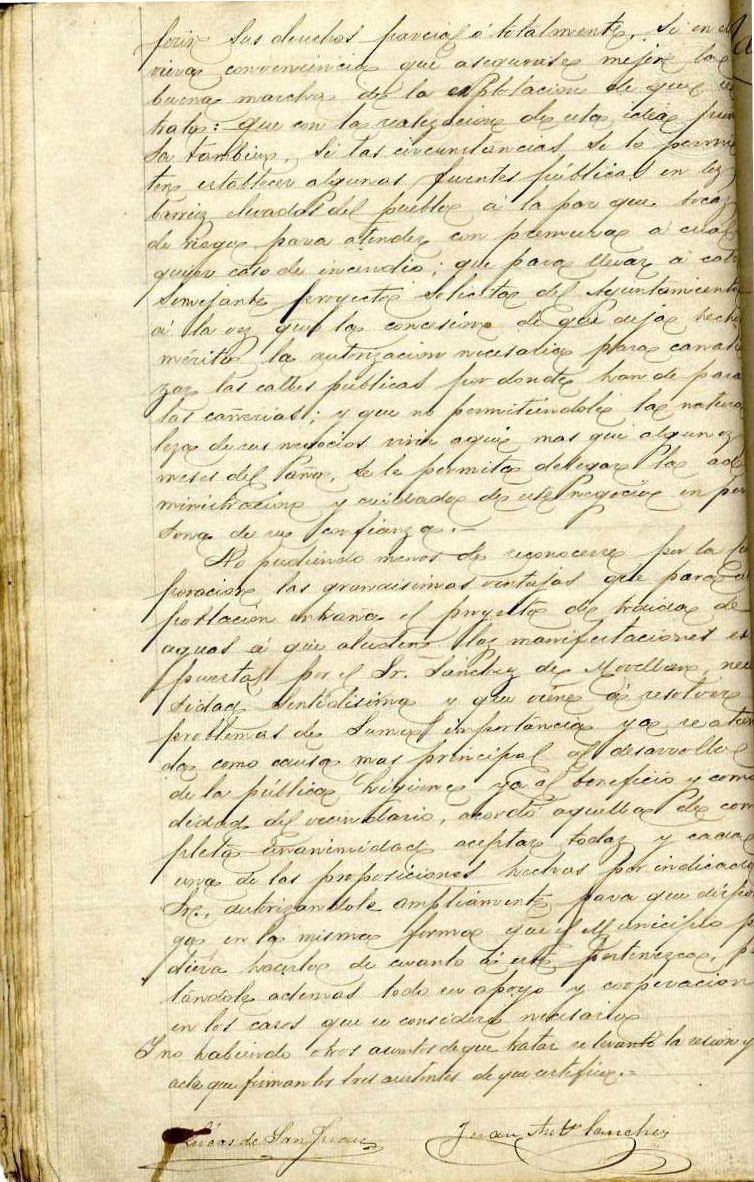 ferir sus derechos parcial ó totalmente, si en el
viera conveniencia que asegurase mejor la
buena marcha de la explotacion de que se
trata: que con la realizacion de esta idea pien
sa tambien, si las circunstancias se lo permi
ten establecer algunas fuentes públicas en los
barrios elevados del pueblo á la par que bocas
de riego para atender con premura á cual
quier caso de incendio; que para llevar á cabo
semejante proyecto solicita del Ayuntamiento
á la vez que la concesion de que deja hecho
mérito la autorizacion necesaria para canali
zar las calles públicas por donde han de pasar
las cañerias; y que no permitiéndole la natura
leza de sus negocios vivir aquí mas que algunos
meses del año, se le permita delegar la ad
ministracion y cuidado de este negocio en per
sona de su confianza.=
No pudiendo menos de reconocerse por la
poracion las grandisimas ventajas que para
poblacion entraña el proyecto de traida de
aguas á que aluden las manifestaciones es
puestas por el Sr. Sanchez de Movellan, nece
sidad sentidisima y que viene á resolver
problemas de suma importancia ya se atien
da como causa mas principal al desarrollo
de la pública higiene ya al beneficio y como
didad del vecindario, acordó aquella de com
pleta unanimidad aceptar todas y cada
una de las proposiciones hechas por indicado
Sr., autorizandole ampliamente para que dispon
ga en la misma forma que el Municipio p
diera hacerlo de cuanto á este pertenezca, pres
tándole ademas todo su apoyo y cooperacion
en los casos que se considere necesario
Y no habiendo otros asuntos de que tratar se levantó la sesion y
acta que firman los Sres asistentes de que certifico.=
Lucas de San Juan Juan Antº Sanchez